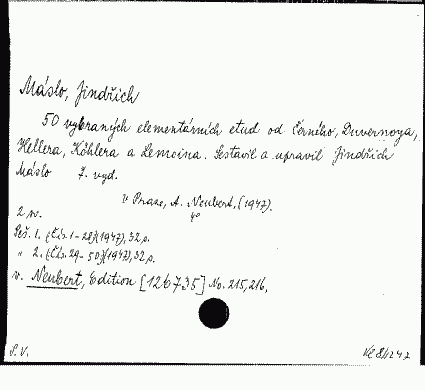 Máslo, Jindřich
50 vybraných elementárních etud od Černého, Duvernoya,
Hellera, Köhlera a Lemoina. Sestavil a upravil Jindřich
Máslo 7. vyd.
v Praze, A. Neubert, [1947].
2 sv. 4°
Seš. 1. (Čís. 1-28)(1947), 32 s.
" 2. (Čís. 29-50)(1947), 32 s.
v. Neubert, Edition [126735] No. 215, 216,
S.V.